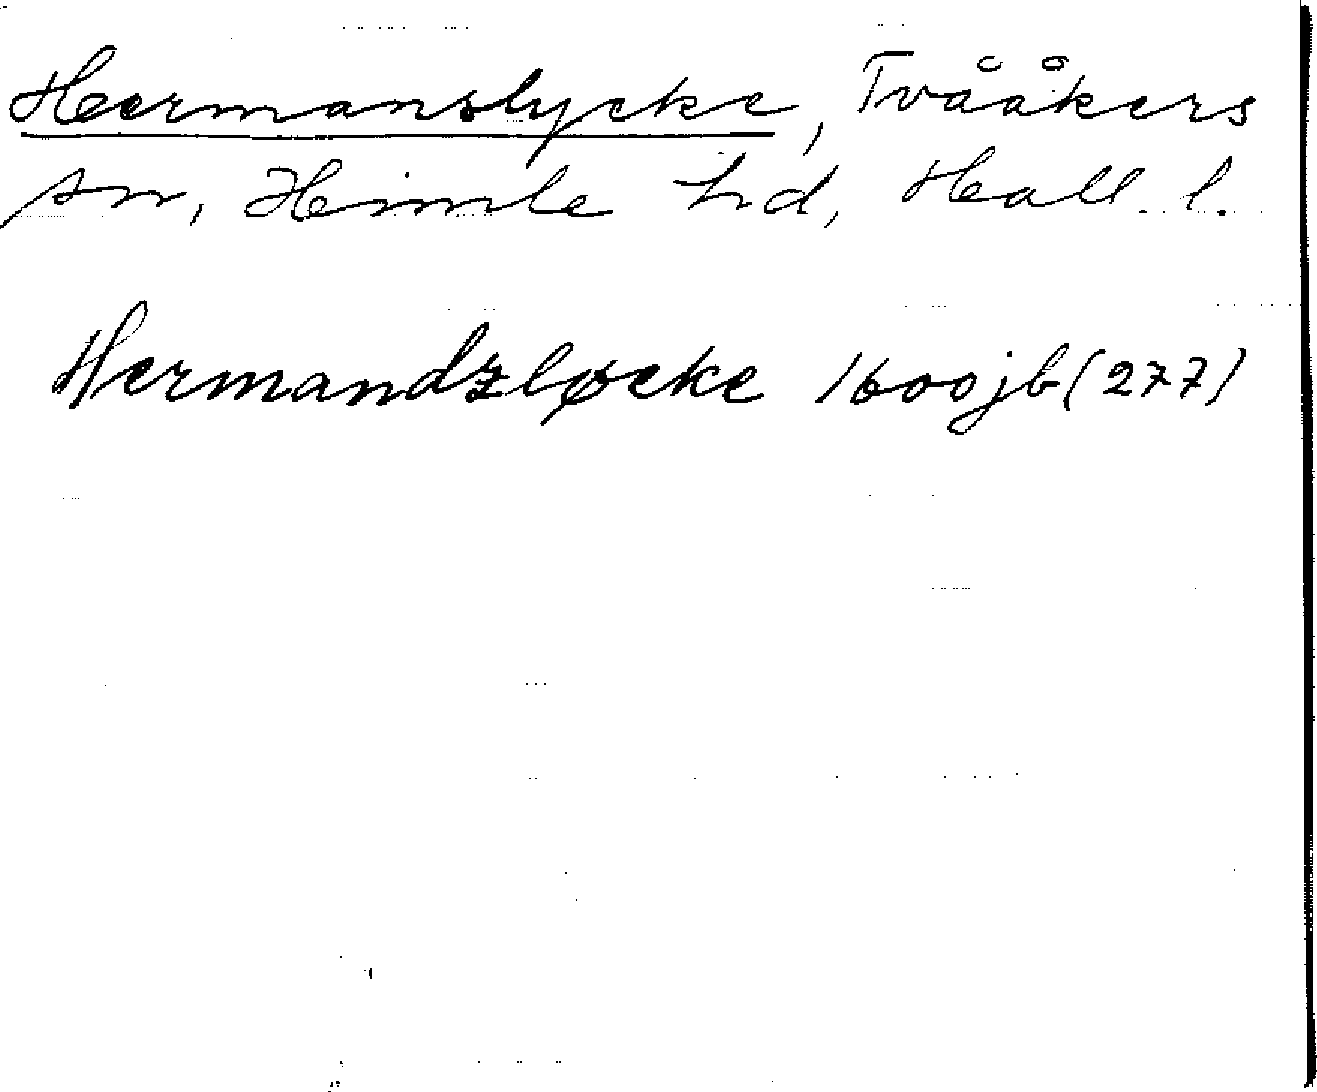 Hermanslycke, Tvååkers
sn, Himle hd, Hall. l.
Hermandzløcke 1600 jb (277)